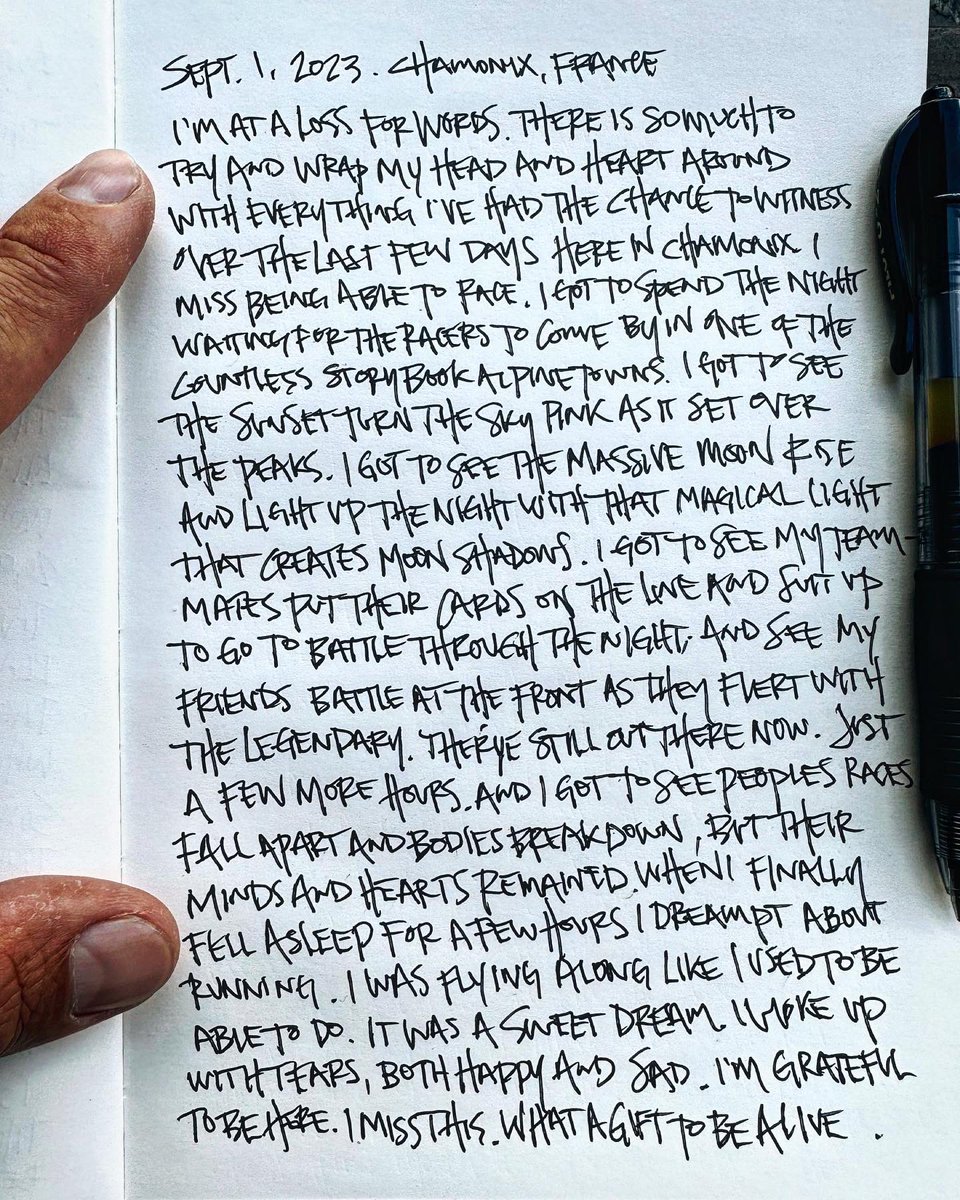 SEPT. 1, 2023. CHAMONIX, FRANCE
I'M AT A LOSS FOR WORDS. THERE IS SO MUCH TO
TRY AND WRAP MY HEAD AND HEART AROUND
WITH EVERYTHING I'VE HAD THE CHANCE TO WITNESS
OVER THE LAST FEW DAYS HERE IN CHAMONIX. I
MISS BEING ABLE TO RACE. I GOT TO SPEND THE NIGHT
WAITING FOR THE RACERS TO COME BY IN ONE OF THE
COUNTLESS STORYBOOK ALPINE TOWNS. I GOT TO SEE
THE SUNSET TURN THE SKY PINK AS IT SET OVER
THE PEAKS. I GOT TO SEE THE MASSIVE MOON RISE
AND LIGHT UP THE NIGHT WITH THAT MAGICAL LIGHT
THAT CREATES MOON SHADOWS. I GOT TO SEE MY TEAM-
MATES PUT THEIR CARDS ON THE LINE AND SUIT UP
TO GO TO BATTLE THROUGH THE NIGHT. AND SEE MY
FRIENDS BATTLE AT THE FRONT AS THEY FLERT WITH
THE LEGENDARY. THER'YE STILL OUT THERE NOW. JUST
A FEW MORE HOURS. AND I GOT TO SEE PEOPLES RACES
FALL APART AND BODIES BREAK DOWN, BUT THEIR
MINDS AND HEARTS REMAINED. WHEN I FINALLY
FELL ASLEEP FOR A FEW HOURS I DREAMPT ABOUT
RUNNING. I WAS FLYING ALONG LIKE I USED TO BE
ABLE TO DO. IT WAS A SWEET DREAM. I WOKE UP
WITH TEARS, BOTH HAPPY AND SAD. I'M GRATEFUL
TO BE HERE. I MISS THIS. WHAT A GIFT TO BE ALIVE.